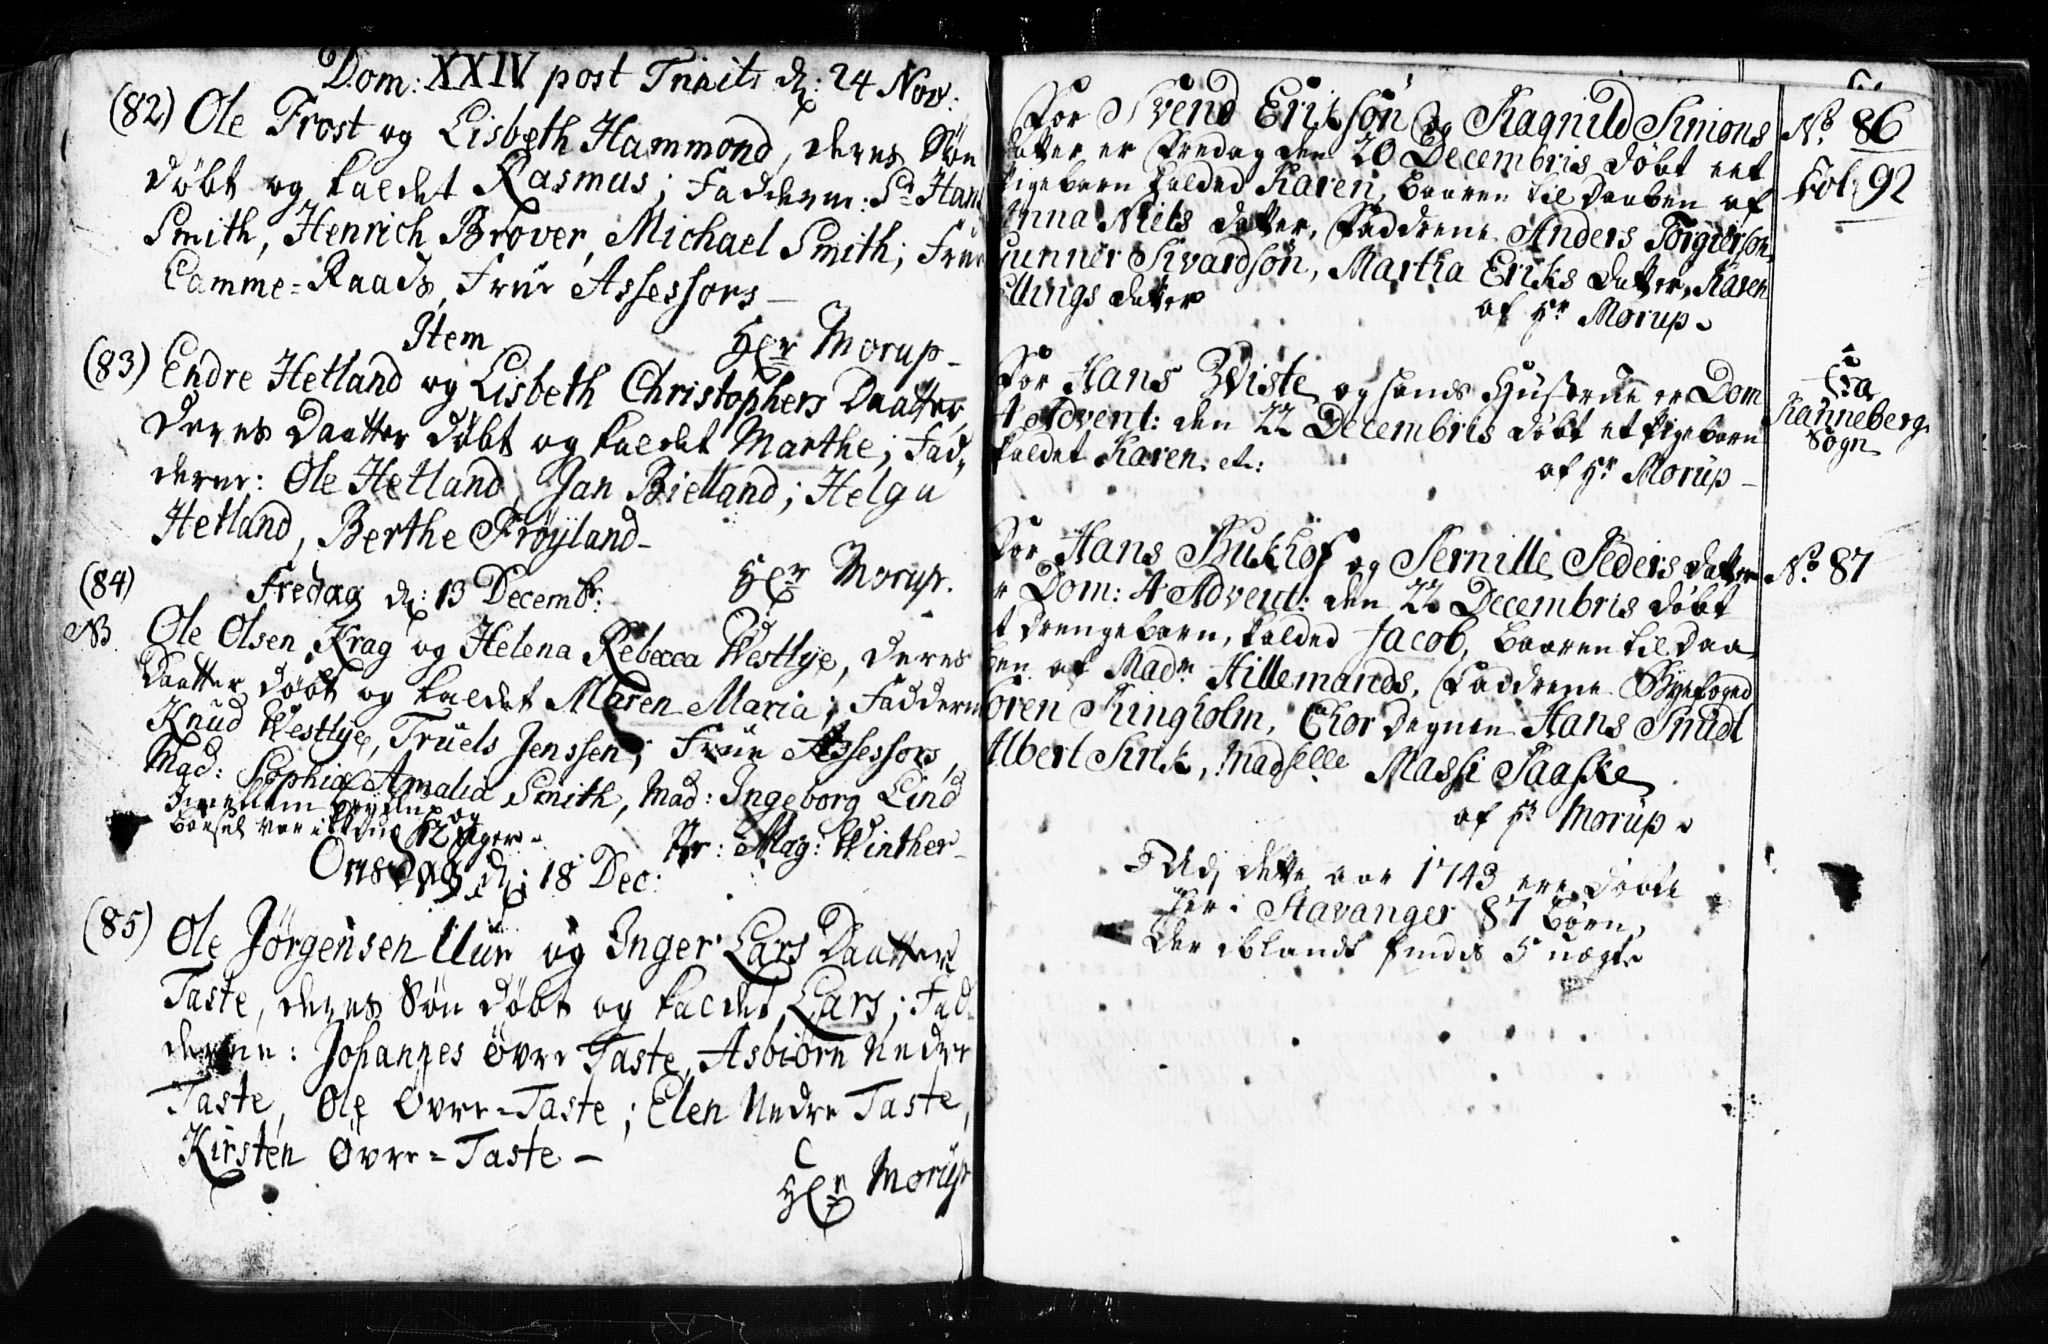 Dom: XXIV post Trinit: d: 24 Nov:
(82) Ole Frost og Lisbeth Hammond, deres Søn
døbt og kaldet Rasmus; Fadderne: Sr Hans
Smith, Henrich Brover, Michael Smith; Frue
Camme-Raads, Frue Assessors
Hr Morup
Item
(83) Endre Hetland og Lisbeth Christophers Daatter,
deres Daatter døbt og kaldet Marthe; Fad-
derne: Ole Hetland, Jan Bielland; Helga
Hetland, Berthe Frøyland
Hr Morup.
(84) Fredag d: 13 Decembr:
NB Ole Olsen Krag og Helena Rebecca Westlye, deres
Daatter døbt og kaldet Maren Maria; Fadderne
Knud Westlye, Truels Jenssen; Frue Assessors,
Mad: Sophia Amalia Smith, Mad: Ingeborg Lind
og
Barsel var ikkun 12 Uger
Mag: Winther
Onsdag d: 18 Dec:
(85) Ole Jørgensen Uur og Inger Lars Daatter
Taste, deres Søn døbt og kaldet Lars; Fad-
derne: Johannes Øvre Taste, Asbiørn Nedre
Taste, Ole Øvre-Taste; Elen Nedre Taste,
Kirsten Øvre-Taste
Hr Morup
For Svend Erikson og Ragnild Simons
datter er Fredag den 20 Decembris døbt eet
pigebarn kalded Karen, baaren til Daaben af
Anna Niels datter, Faddrene Anders Torgierson,
Gunner Sivardsøn, Martha Eriks datter, Karen
Ellings datter
af Hr Morup
No 86
Fol: 92
For Hans Viste og hands Hustrue er Dom
4 Advent: den 22 Decembris døbt et pigebarn
kaldet Karen. etc:
af Hr Morup
Fra
Ranneberg
Sogn
For Hans Bukhof og Pernille Peders datter
er Dom: 4 Advent: den 22 Decembris døbt
et drengebarn, kalded Jacob, baaren til Daa
ben af Madm Hillemands, Faddrene Byefoged
Søren Ringholm, Chor Degnen Hans Smidt
Albert Sink, Madselle Massi Paaske
af Hr Morup
No 87
Udi dette aar 1743 ere døbte
her i Stavanger 87 Børn,
der iblandt findes 5 uægte